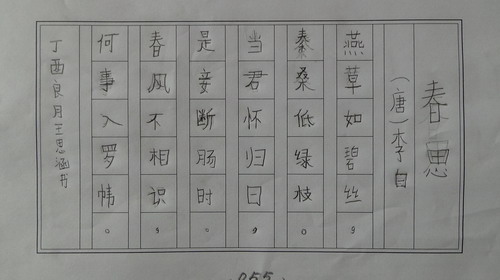 春思
(唐)李白
燕草如碧丝，
秦桑低绿枝。
当君怀归日，
是妾断肠时。
春风不相识，
何事入罗帏。
丁酉良月王思涵书
055